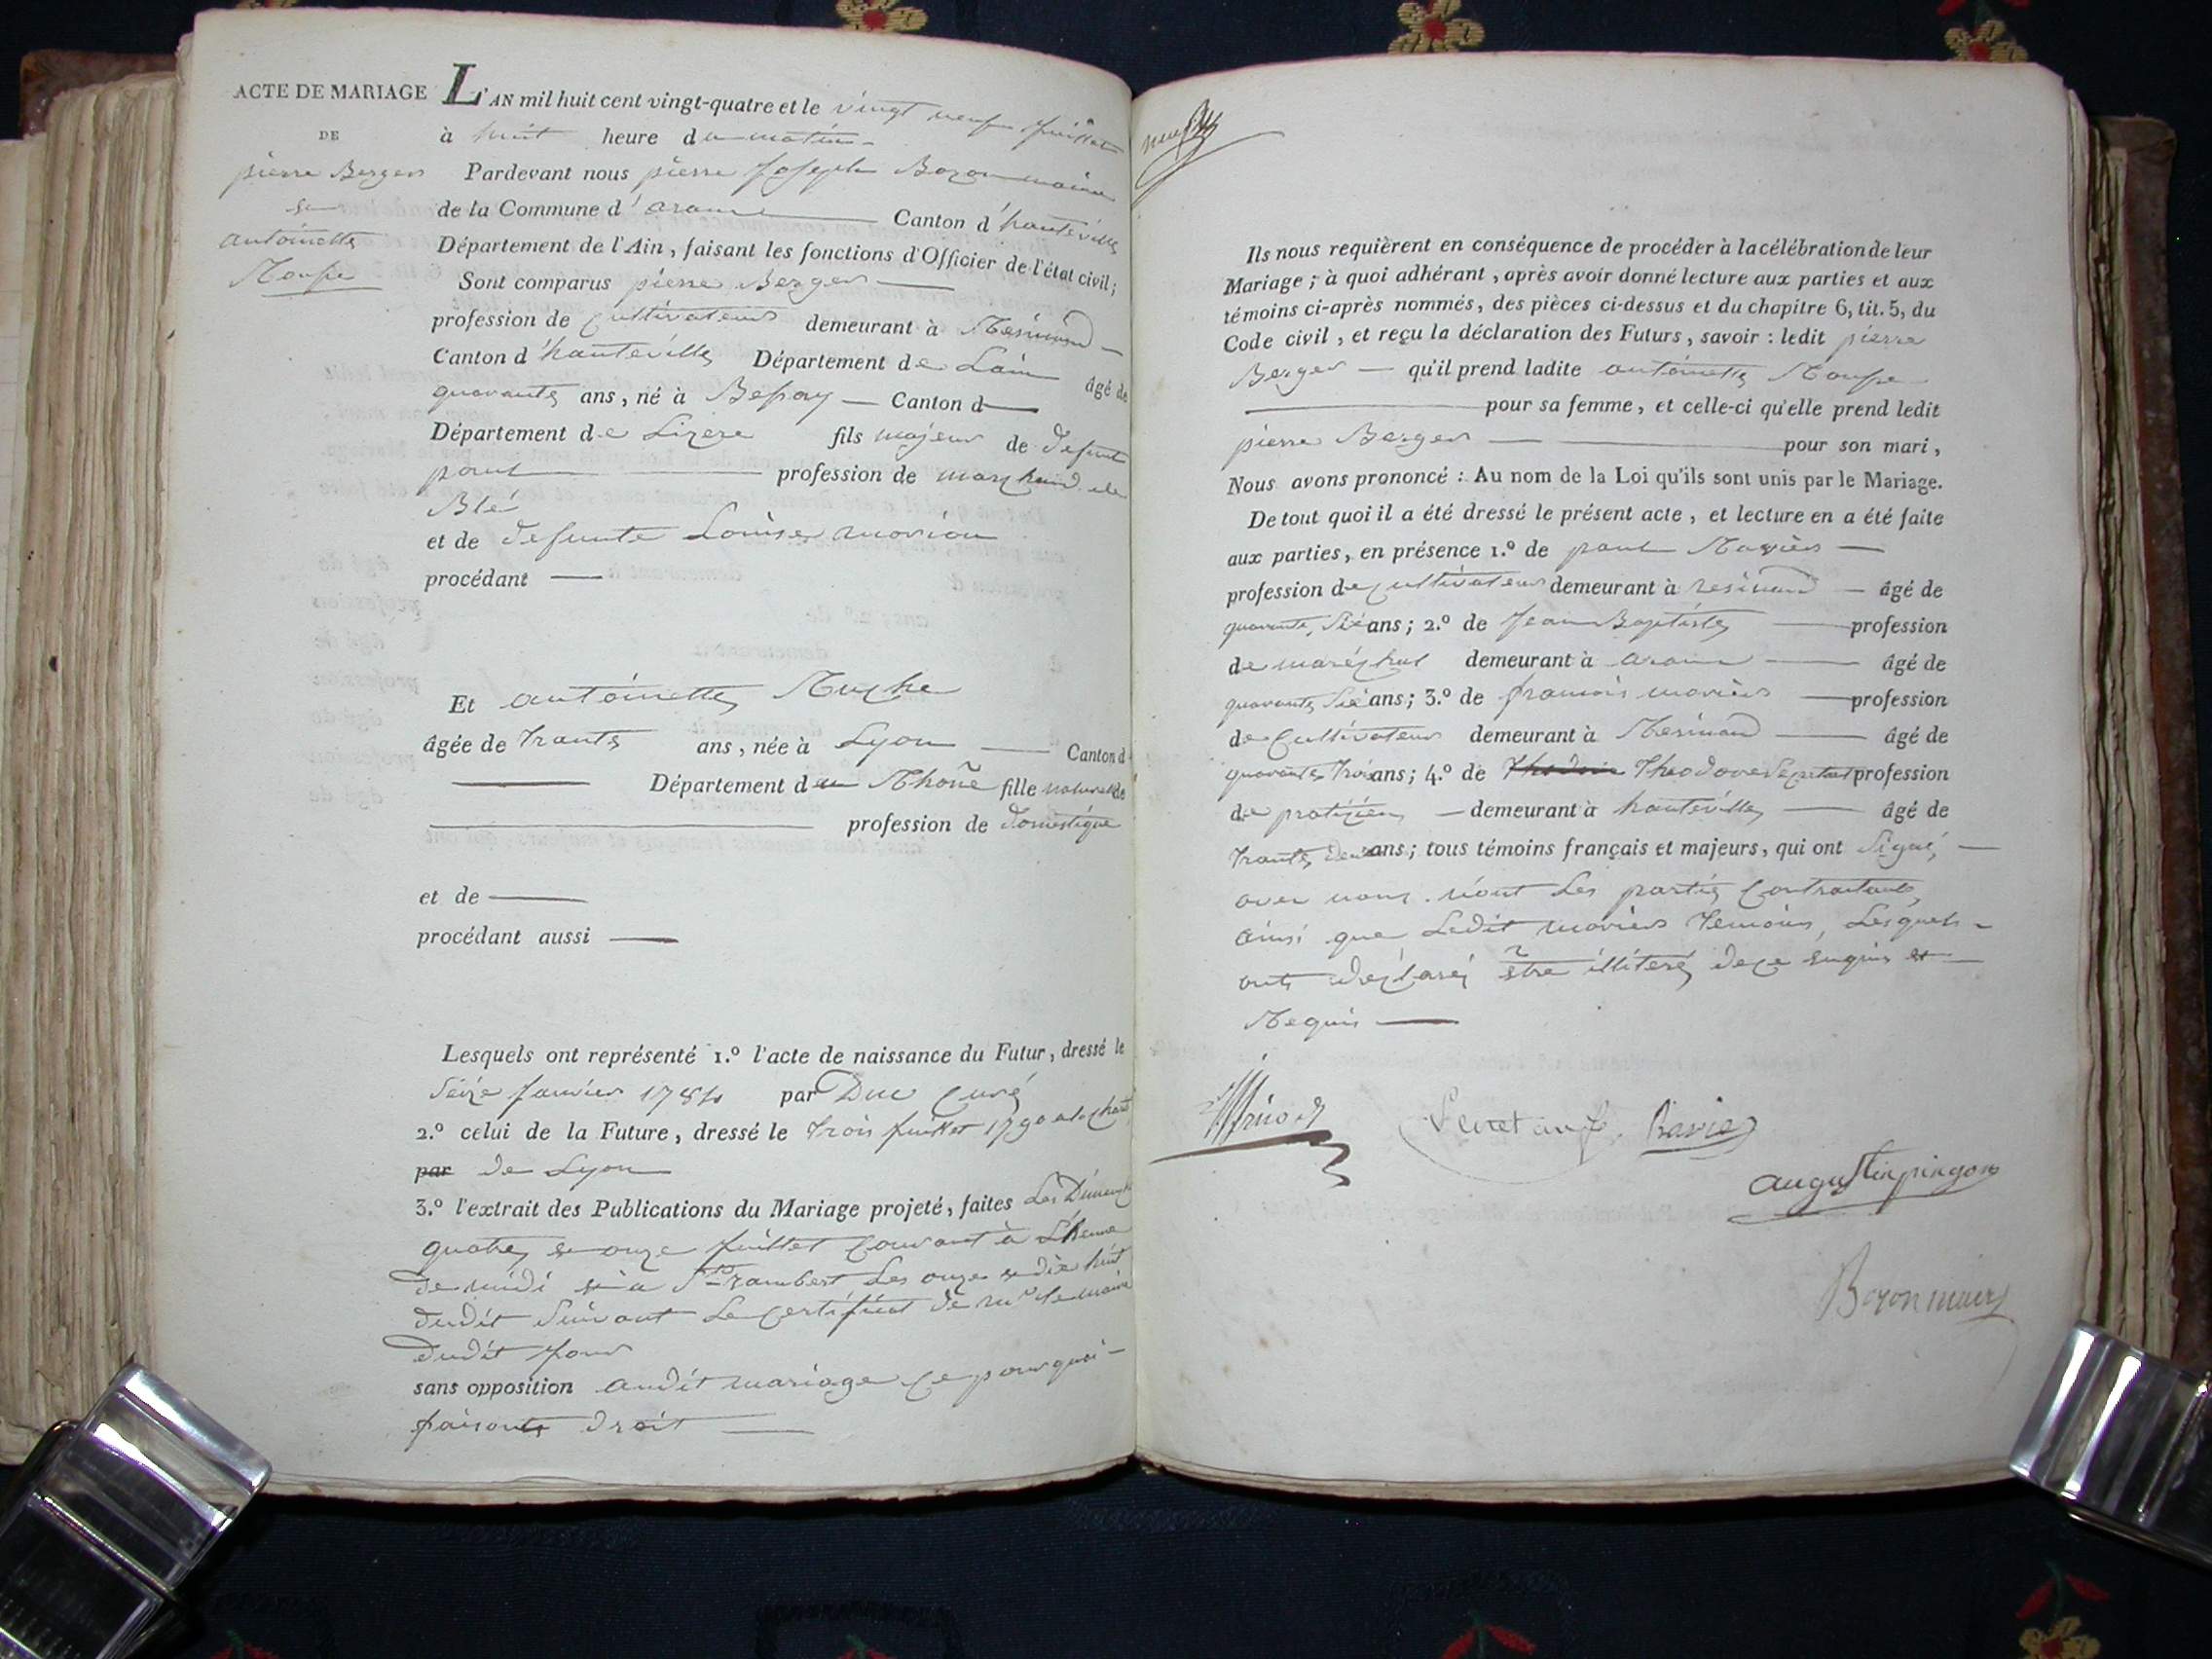 ACTE DE MARIAGE
DE
pierre Berger
et
antoinette
Rouse
L'AN mil huit cent vingt-quatre et le vingt neuf juillet
à huit heure du matin
Pardevant nous pierre Joseph Bozon maire
de la Commune d'arane Canton d'hauteville
Département de l'Ain, faisant les fonctions d'Officier de l'état civil;
Sont comparus pierre Berger
profession de Cultivateur demeurant à Resinand
Canton d'hauteville Département de Lain âgé de
quarante ans, né à Bessay Canton d
Département de Lizere fils majeur de defunt
paul profession de marchand de
Blé
et de defunte Louise morion
procédant
Et antoinette Ruche
âgée de trante ans, née à Lyon Canton d
Département du Rhone fille naturelle de
profession de domestique
et de
procédant aussi
Lesquels ont représenté 1.º l'acte de naissance du Futur, dressé le
seize janvier 1784 par Duc Curé
2.º celui de la Future, dressé le trois juillet 1790 a la charité
par de Lyon
3.º l'extrait des Publications du Mariage projeté, faites Les Dimanche
quatre et onze juillet Courant à L'heure
de midi et a St rambert Les onze et dix huit
dudit suivant Le Certificat de mr le maire
dudit jour
sans opposition audit mariage Ce pourquoi
faisant droit
neuf
Ils nous requièrent en conséquence de procéder à la célébration de leur
Mariage; à quoi adhérant, après avoir donné lecture aux parties et aux
témoins ci-après nommés, des pièces ci-dessus et du chapitre 6, tit. 5, du
Code civil, et reçu la déclaration des Futurs, savoir: ledit pierre
Berger qu'il prend ladite antoinette Rouse
pour sa femme, et celle-ci qu'elle prend ledit
pierre Berger pour son mari,
Nous avons prononcé: Au nom de la Loi qu'ils sont unis par le Mariage.
De tout quoi il a été dressé le présent acte, et lecture en a été faite
aux parties, en présence 1.º de paul Ravier
profession de Cultivateur demeurant à resinand âgé de
quarante six ans; 2.º de Jean Baptiste profession
de maréchal demeurant à arane âgé de
quarante six ans; 3.º de francois movier profession
de Cultivateur demeurant à Resinand âgé de
quarante trois ans; 4.º de Theodore Secretant profession
de praticien demeurant à hauteville âgé de
trante deux ans; tous témoins français et majeurs, qui ont signé,
avec nous. n'ont Les partis Contractants,
ainsi que Ledit movier temoin, Lesquels
ont déclaré être illiteré de ce enquis et
Requis
Secretan f. Ravier
augustin pingon
Bozon maire